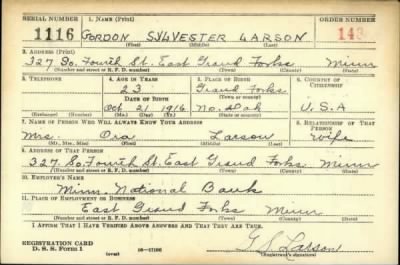 SERIAL NUMBER 1. NAME (Print) ORDER NUMBER
1116 GORDON SYLVESTER LARSON 143
(First) (Middle) (Last)
2. ADDRESS (Print)
327 So. Fourth St. East Grand Forks Minn
(Number and street or R. F. D. number) (Town) (County) (State)
3. TELEPHONE 4. AGE IN YEARS 5. PLACE OF BIRTH 6. COUNTRY OF CITIZENSHIP
23 Grand Forks
DATE OF BIRTH (Town or county)
Oct 21 1916 No. Dak U.S.A
(Exchange) (Number) (Mo.) (Day) (Yr.) (State or country)
7. NAME OF PERSON WHO WILL ALWAYS KNOW YOUR ADDRESS 8. RELATIONSHIP OF THAT PERSON
Mrs. Ora Larson wife
(Mr., Mrs., Miss) (First) (Middle) (Last)
9. ADDRESS OF THAT PERSON
327 So. Fourth St. East Grand Forks Minn
(Number and street or R. F. D. number) (Town) (County) (State)
10. EMPLOYER'S NAME
Minn. National Bank
11. PLACE OF EMPLOYMENT OR BUSINESS
East Grand Forks Minn
(Number and street or R. F. D. number) (Town) (County) (State)
I AFFIRM THAT I HAVE VERIFIED ABOVE ANSWERS AND THAT THEY ARE TRUE.
REGISTRATION CARD
D. S. S. Form 1 (over) 16—17105 G S Larson
(Registrant's signature)